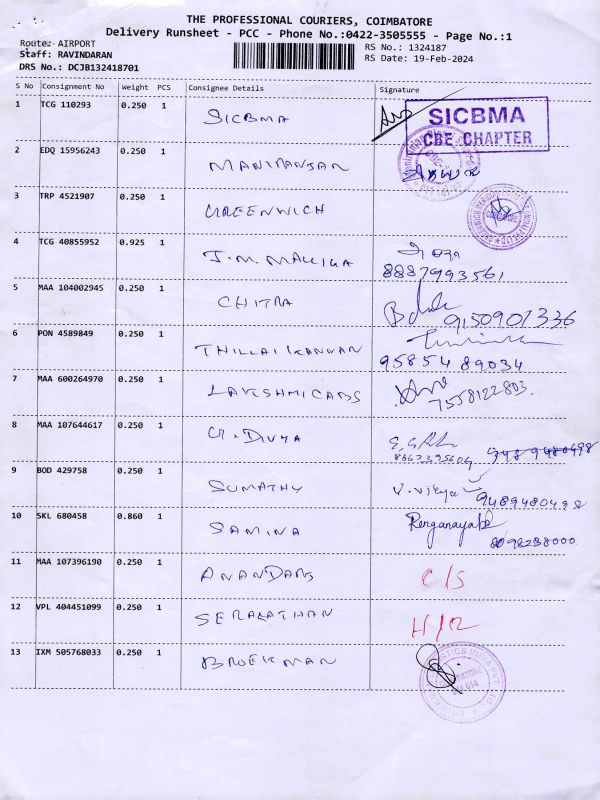 THE PROFESSIONAL COURIERS, COIMBATORE
Delivery Runsheet - PCC - Phone No.:0422-3505555 - Page No.:1
Route: AIRPORT
Staff: RAVINDARAN
DRS No.: DCJB132418701
RS No.: 1324187
RS Date: 19-Feb-2024
S No Consignment No Weight PCS Consignee Details Signature
1 TCG 110293 0.250 1 SICBMA
SICBMA
CBE CHAPTER
2 EDQ 15956243 0.250 1 MANIRANJAN
3 TRP 4521907 0.250 1 GREENWICH
4 TCG 40855952 0.925 1 J.M. MALLIGA
8887993561
5 MAA 104002945 0.250 1 CHITRA
9150907336
6 PON 4589849 0.250 1 THILLAIKANNAN
95854 89034
7 MAA 600264970 0.250 1 LAKSHMICABS
7558122803
8 MAA 107644617 0.250 1 G. DIVYA
9489480498
9 BOD 429758 0.250 1 SUMATHY V. Vijaya
9489480498
10 SKL 680458 0.860 1 SAMINA Renganayaki
8098238000
11 MAA 107396190 0.250 1 ANANDARS C/S
12 VPL 404451099 0.250 1 SERALATHAN H/R
13 IXM 505768033 0.250 1 BROEKMAN